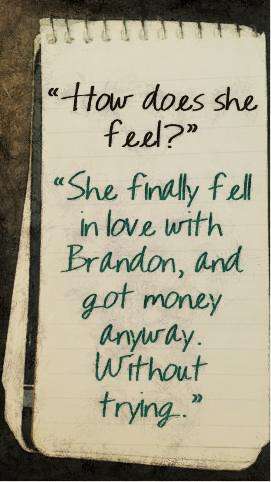 “How does she
feel?”
“She finally fell
in love with
Brandon, and
got money
anyway.
Without
trying.”